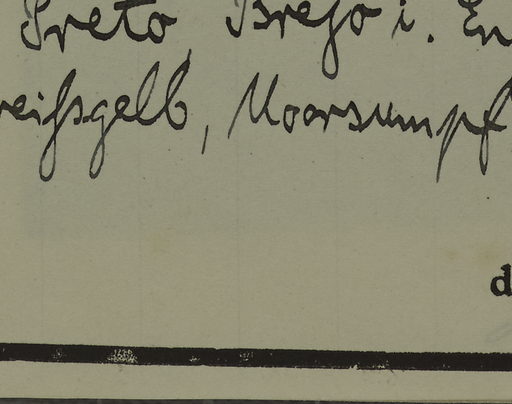 Preto, Brejo i. En
weißgelb, Moorsumpf
d